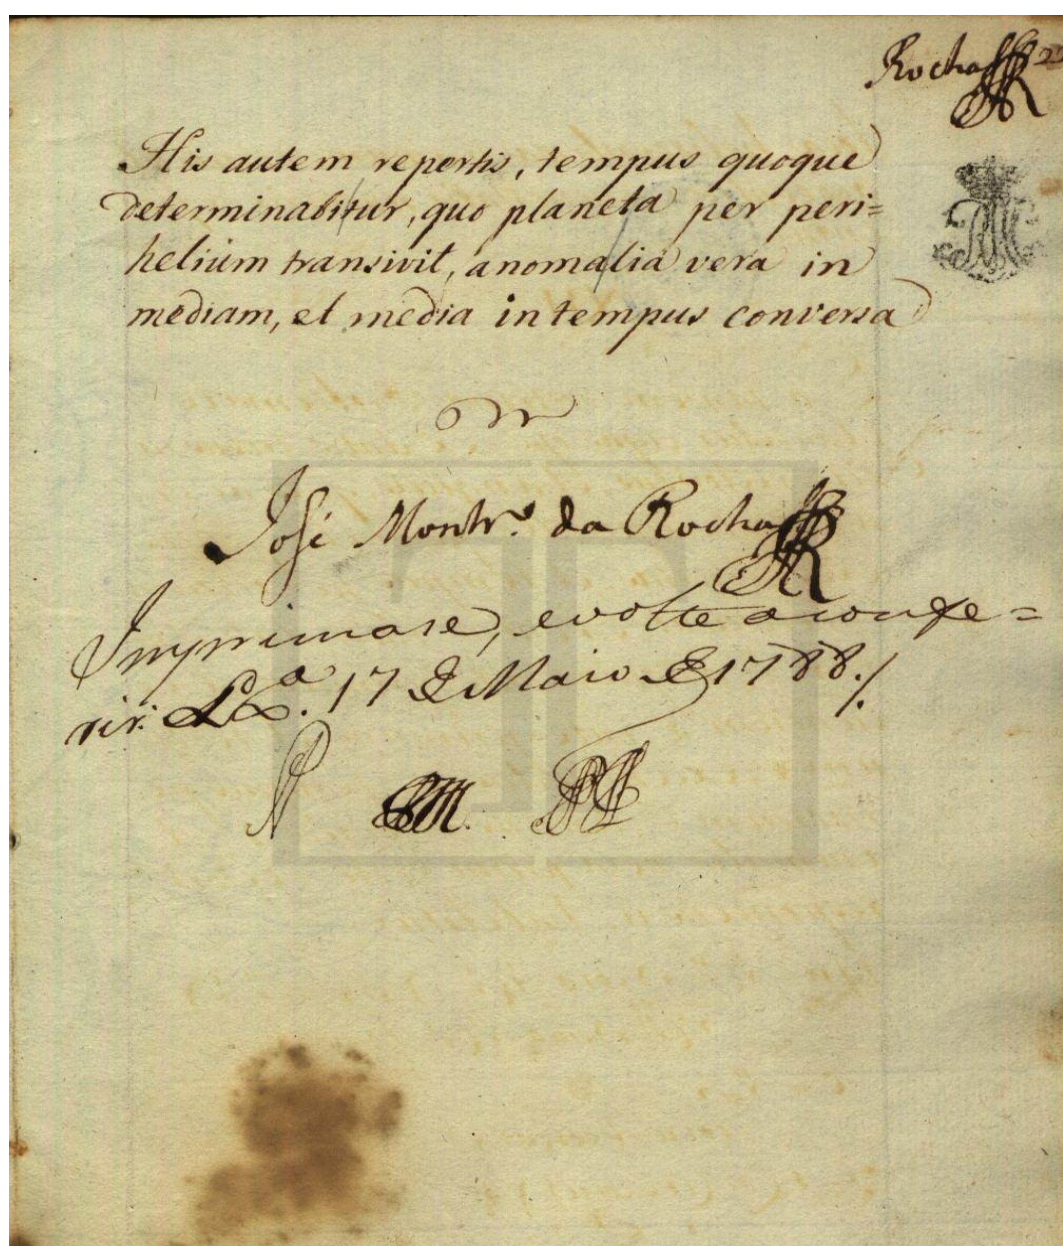 Rocha 22
His autem repertis, tempus quoque
determinabitur, quo planeta per peri=
helium transivit, anomalia vera in
mediam, et media in tempus conversa
José Montr.º da Rocha
Imprimase, e volte a confe=
rir. Lx.ª 17 de Maio de 1788./